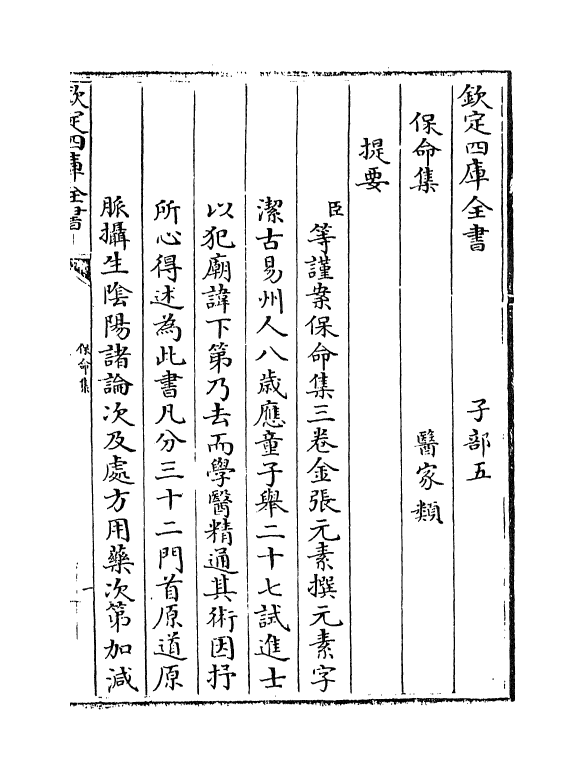 欽定四庫全書　子部五
保命集　醫家類
提要
臣等謹案保命集三卷金張元素撰元素字
潔古易州人八歲應童子舉二十七試進士
以犯廟諱下第乃去而學醫精通其術因抒
所心得述為此書凡分三十二門首原道原
脈攝生陰陽諸論次及處方用藥次第加減
欽定四庫全書
保命集
一